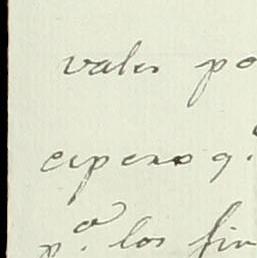 vales po
espero q.
p.ª los fin